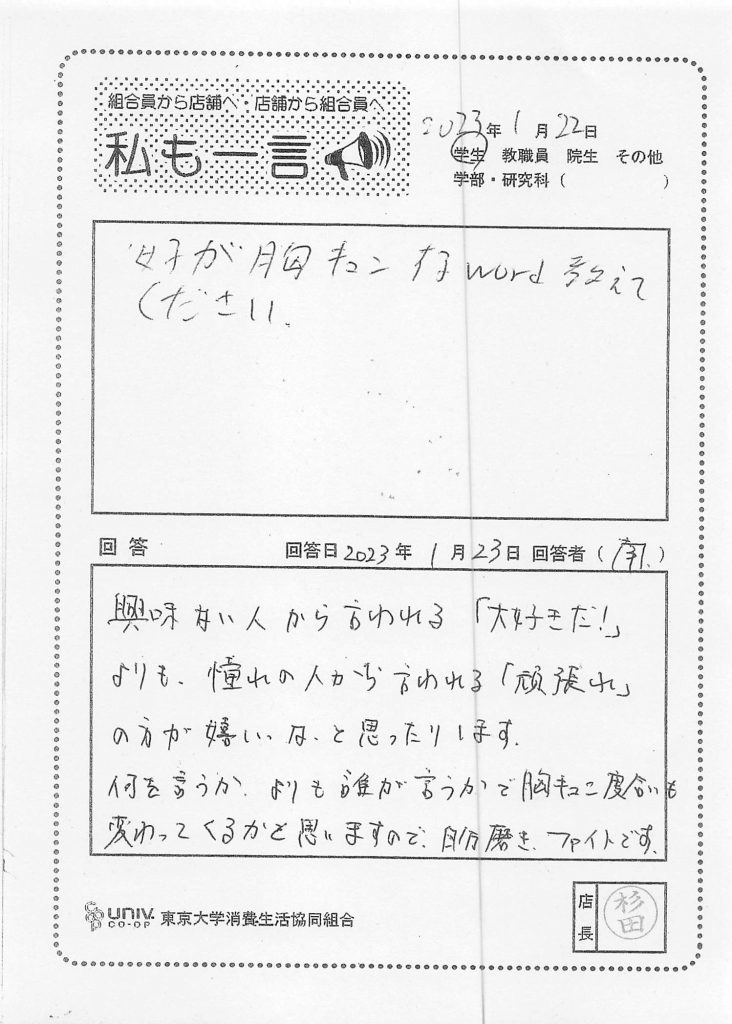 組合員から店舗へ・店舗から組合員へ
私も一言
2023年 1月 22日
学生 教職員 院生 その他
学部・研究科（　　　　　　）
女子が胸キュンなword教えて
ください.
回答　回答日2023年 1月23日 回答者（南.）
興味ない人から言われる「大好きだ!」
よりも、憧れの人から言われる「頑張れ」
の方が嬉しいな、と思ったりします.
何を言うか、よりも誰が言うかで胸キュン度合いも
変わってくるかと思いますので、自分磨き、ファイトです.
coop univ. CO-OP 東京大学消費生活協同組合
店長 杉田